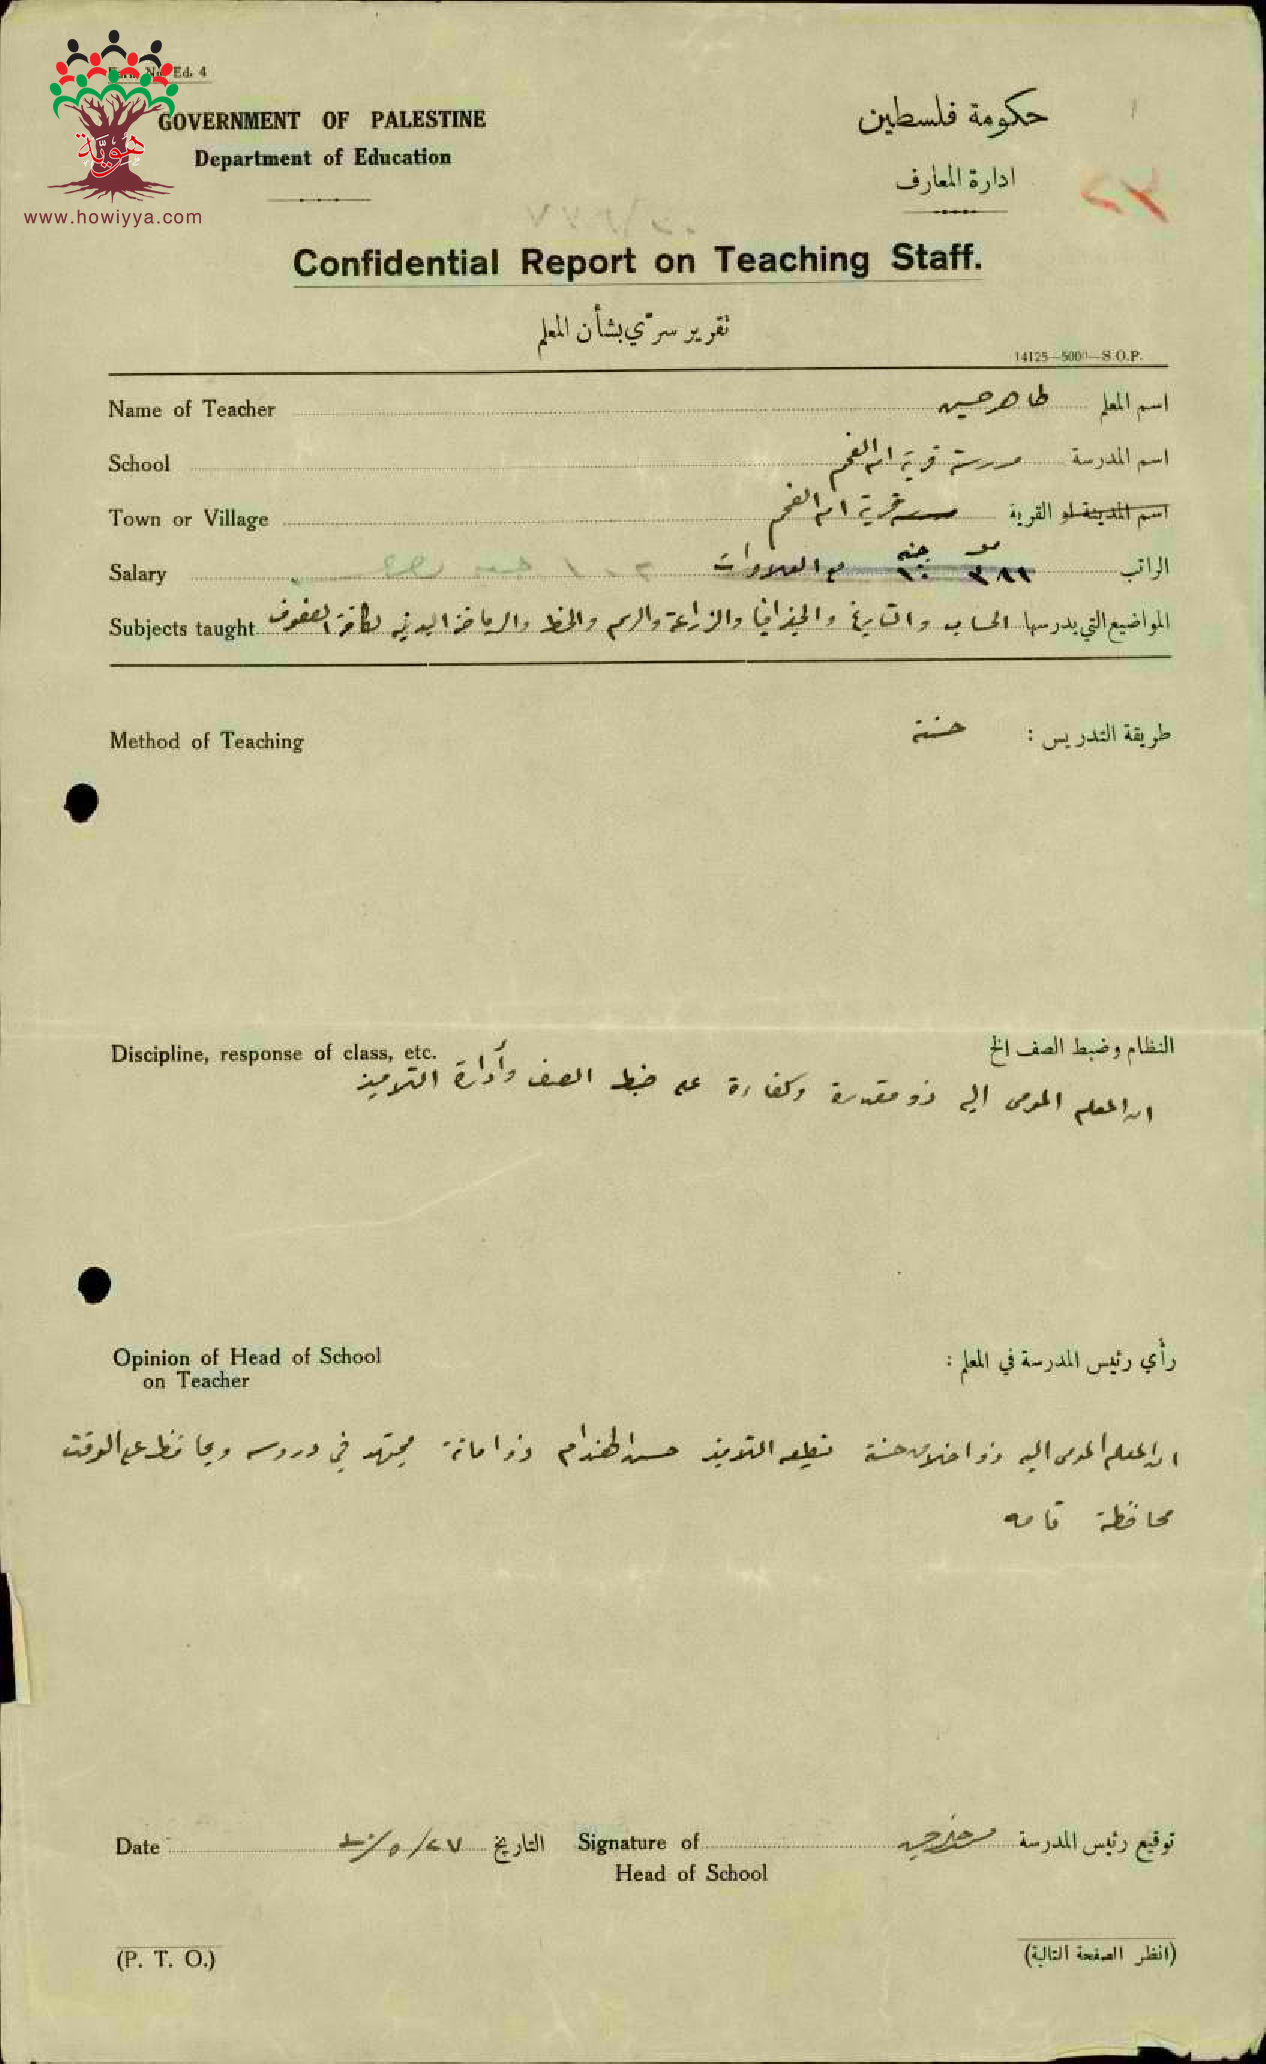 Ed. 4
GOVERNMENT OF PALESTINE
Department of Education
حكومة فلسطين
ادارة المعارف
هوية
www.howiyya.com
Confidential Report on Teaching Staff.
تقرير سرّي بشأن المعلم
14125—5000—S.O.P.
Name of Teacher طاهر حسين اسم المعلم
School مدرسة قرية ام الفحم اسم المدرسة
Town or Village قرية ام الفحم اسم المدينة او القرية
Salary مع العلاوات جنيه ١٠ مل ٣٨٩١ الراتب
Subjects taught المواضيع التي يدرسها الحساب والتاريخ والجغرافيا والزراعة والرسم والخط والرياضة البدنية لكافة الصفوف
Method of Teaching حسنة طريقة التدريس :
Discipline, response of class, etc. النظام وضبط الصف الخ
ان المعلم المومى اليه ذو مقدرة وكفاءة على ضبط الصف وأدارة التلاميذ
Opinion of Head of School
on Teacher
رأي رئيس المدرسة في المعلم :
ان المعلم المومى اليه ذو اخلاق حسنة تطيعه التلاميذ حسن الهندام ذو امانة يجتهد في دروسه ويحافظ على الوقت
محافظة تامه
Date ٢٧/٥/ التاريخ Signature of توقيع رئيس المدرسة
Head of School
(P. T. O.) (انظر الصفحة التالية)